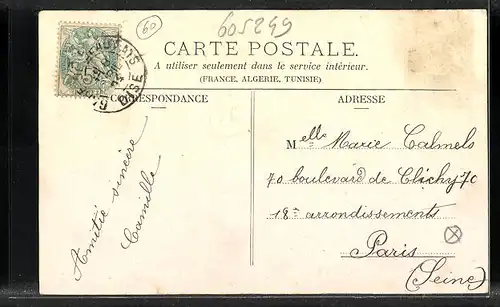 60
605249
CARTE POSTALE.
A utiliser seulement dans le service intérieur.
(FRANCE, ALGERIE, TUNISIE)
CORRESPONDANCE
ADRESSE
Amitié sincère
Camille
Melle Marie Calmels
70 boulevard de Clichy 70
18e arrondissements
Paris
(Seine)
OISE